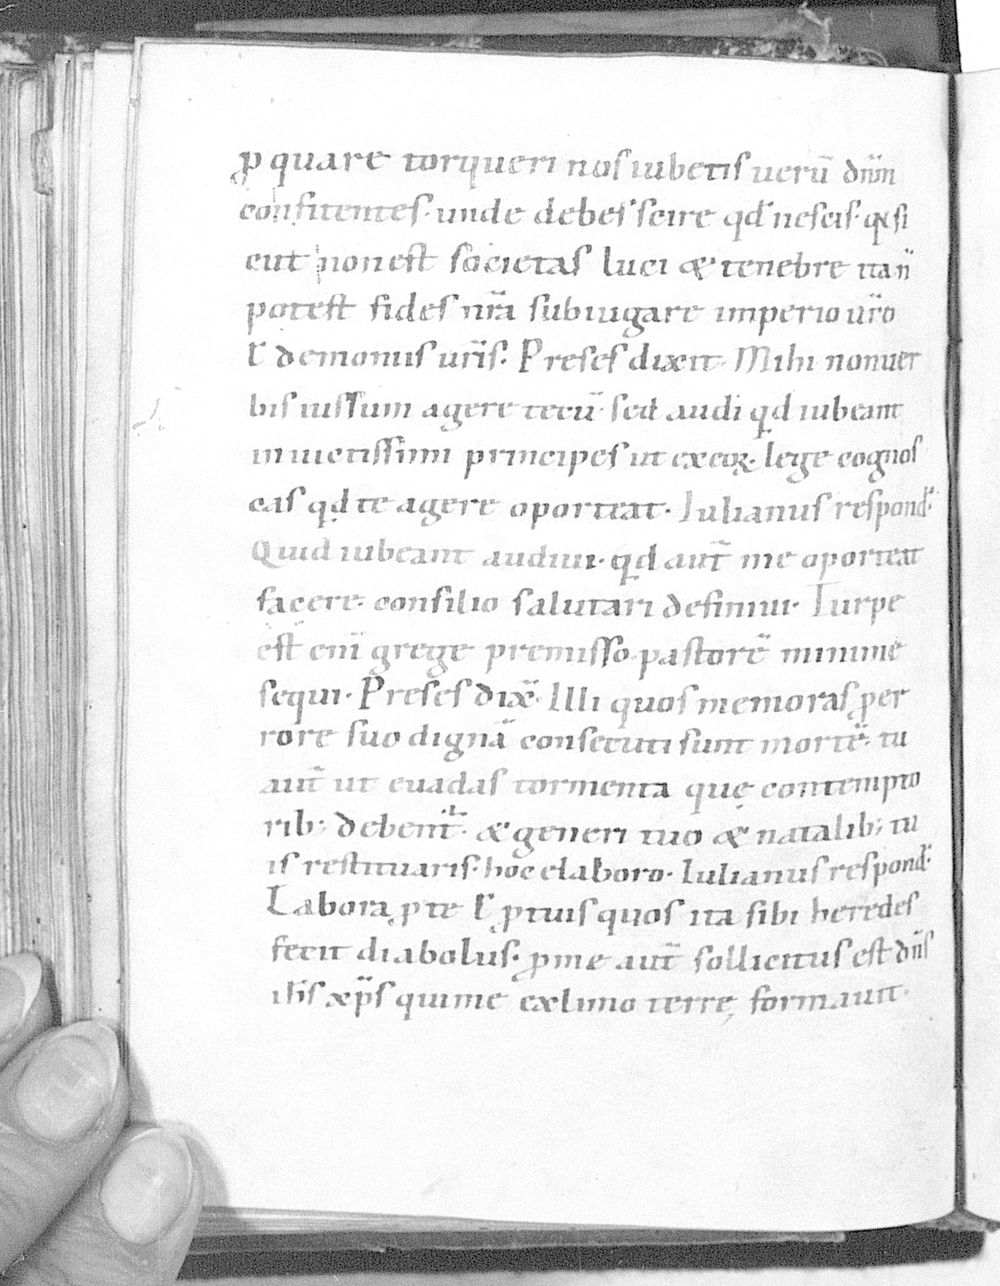 ꝓ quare torqueri nos iubetis uerū dn̄m
confitentes· unde debes scire qd̄ nescis· q̄a si
cut non est societas luci & tenebre ita n̄
potest fides nr̄a subiugare imperio ur̄o
ł demoniis ur̄is. Preses dixit· Mihi non uer
bis iussum agere tecū· sed audi qd iubeant
inuictissimi principes ut ex eoꝝ lege cognos
cas qd te agere oporteat· Iulianus respond̄·
Quid iubeant audiui· qd aut̄ me oporteat
facere· consilio salutari definiui· Turpe
est eni̅ grege premisso pastorē minime
sequi· Preses dix̄· Illi quos memoras ꝑ er
rore suo dignā consecuti sunt mortē· tu
aut̄ ut euadas tormenta quę contempto
rib; debent᷑· & generi tuo & natalib; tu
is restituaris· hoc elaboro· Iulianus respond̄·
Labora ꝓ te ł ꝓ tuis quos ita sibi heredes
fecit diabolus· ꝓ me aut̄ sollicitus est dn̄s
ih̄s xp̄s qui me ex limo terrę formauit·